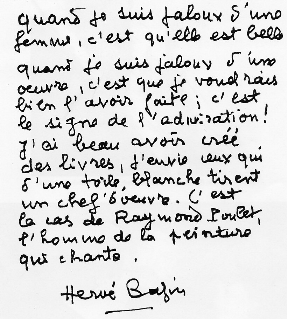 quand je suis jaloux d'une
femme, c'est qu'elle est belle
quand je suis jaloux d'une
oeuvre, c'est que je voudrais
bien l'avoir faite ; c'est
le signe de l'admiration !
J'ai beau avoir créé
des livres, j'envie ceux qui
d'une toile blanche tirent
un chef d'oeuvre. C'est
le cas de Raymond Poulet,
l'homme de la peinture
qui chante.
Hervé Bazin